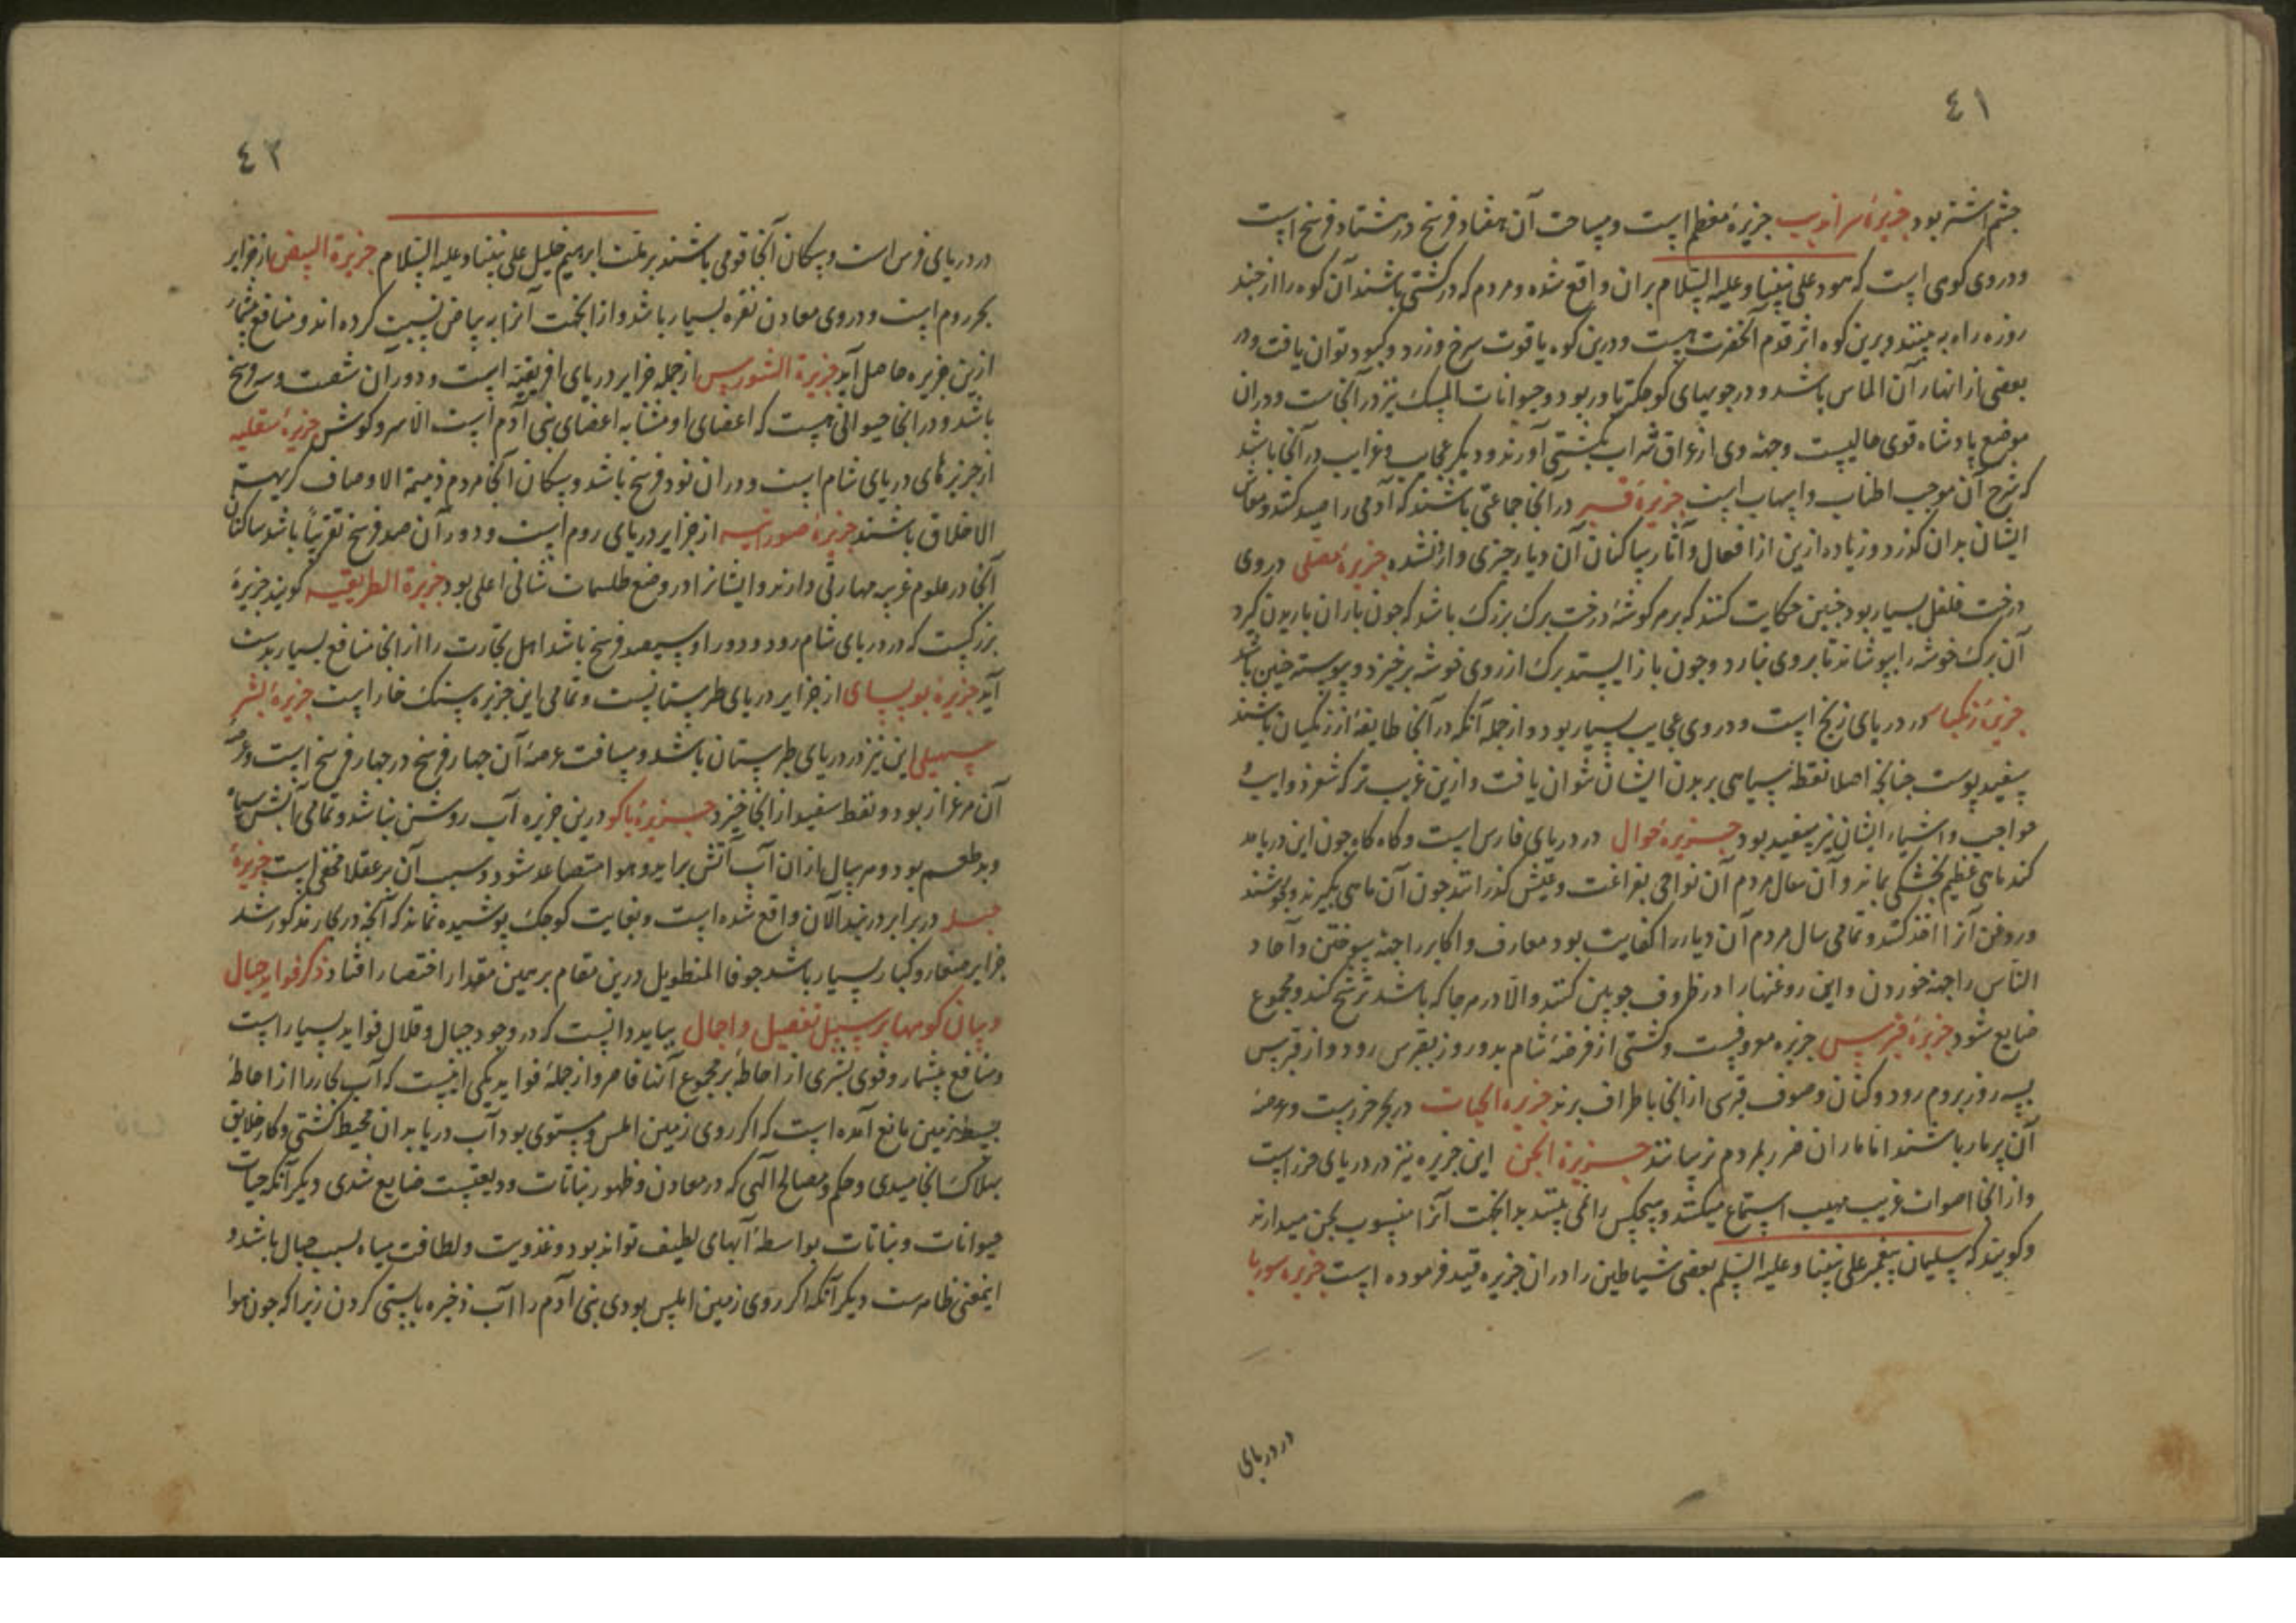 ٤١
چشم داشته بود جزیرهٔ سراندیب جزیرهٔ معظم است و مساحت آن هفتاد فرسخ در هشتاد فرسخ است
و در وی کوهی است که هبود علی نبینا و علیه السلام بران واقع شده و مردم که در کشتی باشند آن کوه را از چند
روزه راه به بینند و برین کوه اثر قدم آنحضرت هست و درین کوه یاقوت سرخ و زرد و کبود توان یافت و در
بعضی از انهار آن الماس باشد و در جویهای کوچکتر بلور بود و حیوانات المسک نیز در آنجاست و دران
موضع پادشاه قوی حالیست و جهة وی از عراق شراب بکشتی آورند و دیکر عجایب و غرایب در آنجا باشد
که شرح آن موجب اطناب و اسهاب است جزیرهٔ قسیر در آنجا جماعتی باشند که آدمی را صید کنند و معاش
ایشان بدان کذرد و زیاده ازین از افعال و آثار ساکنان آن دیار چیزی وارد نشده جزیرهٔ مقلی در وی
درخت فلفل بسیار بود چنین حکایت کنند که بر هر کوشهٔ درخت برک بزرک باشد که چون باران باریدن کیرد
آن برک خوشه را بپوشاند تا بر وی نبارد و چون باز ایستد برک از روی خوشه برخیزد و پیوسته چنین باشد
جزیرهٔ زنکیان در دریای زنج است و در وی عجایب بسیار بود و از جمله آنکه در آنجا طایفهٔ از زنکیان باشند
سفید پوست چنانچه اصلا نقطه سیاهی بر بدن ایشان نتوان یافت و ازین غریب تر که شعر ذوایب و
حواجب و اشیاء ایشان نیز سفید بود جزیرهٔ خوال در دریای فارس است و کاه کاه چون این دریا مد
کند ماهی عظیم بخشکی بماند و آن سال مردم آن نواحی بفراغت و عیش کذرانند چون آن ماهی بکیرند و بجوشند
و روغن آنرا اخذ کنند و تمامی سال مردم آن دیار را کفایت بود معارف و اکابر را جهة سوختن و آحاد
الناس را جهة خوردن و این روغنها را در ظروف چوبین کنند و الا در هر جا که باشد ترشح کند و مجموع
ضایع شود جزیرهٔ قبرس جزیره معروفست و کشتی از فرضهٔ شام بدو روز بقبرس رود و از قبرس
بسه روز بروم رود و کتان و صوف قبرسی از آنجا باطراف برند جزیره الحیات در بحر خزرست و عرصهٔ
آن پر مار باشد اما ماران ضرر بمردم نرسانند جزیرة الجن این جزیره نیز در دریای خزر است
و از آنجا اصوات غریب مهیب استماع میکنند و هیچکس را نمی بینند بدانجهت آنرا منسوب بجن میدارند
و کویند که سلیمان پیغمبر علی نبینا و علیه السلم بعضی شیاطین را دران جزیره قید فرموده است جزیره سوریا
در دریای
٤٢
در دریای فرس است و سکان آنجا قومی باشند بر ملت ابرهیم خلیل علی نبینا و علیه السلام جزیرة البیض از جزایر
بحر روم است و در وی معادن نقره بسیار باشد و از انجهت آنرا به بیاض نسبت کرده اند و منافع بیشمار
ازین جزیره حاصل آید جزیرة الشورس از جمله جزایر دریای افریقیه است و دور آن شصت و سه فرسخ
باشد و در آنجا حیوانی هست که اعضای او مشابه اعضای بنی آدم است الا سر و کوش جزیرهٔ سقلیه
از جزیرهای دریای شام است و دور ان نود فرسخ باشد و سکان آنجا مردم ذمیمة الاوصاف کریهة
الاخلاق باشند جزیرهٔ صورانیه از جزایر دریای روم است و دور آن صد فرسخ تقریباً باشد ساکنان
آنجا در علوم غریبه مهارتی دارند و ایشانرا در وضع طلسمات شانی اعلی بود جزیرة الطریقیه کویند جزیرهٔ
بزرکیست که در دریای شام رود و دور او سیصد فرسخ باشد اهل تجارت را از آنجا منافع بسیار بدست
آید جزیرهٔ بوبسای از جزایر دریای طبرستانست و تمامی این جزیره سنک خارا است جزیرهٔ البشر
سهیلی این نیز در دریای طبرستان باشد و مسافت عرصهٔ آن چهار فرسخ در چهار فرسخ است و عرصهٔ
آن مرغزار بود و نفط سفید از آنجا خیزد جزیرهٔ باکو درین جزیره آب روشن نباشد و تمامی آبش سیاه
و بد طعم بود و هر سال ازان آب آتش براید و بهوا متصاعد شود و سبب آن بر عقلا مخفی است جزیرهٔ
جبد در برابر دربند الان واقع شده است و بغایت کوچک پوشیده نماند که آنچه درکار مذکور شد
جزایر صغار و کبار بسیار باشد خوفا للتطویل درین مقام بر همین مقدار اختصار افتاد ذکر فواید جبال
و بیان کوهها بر سبیل تفصیل و اجمال بباید دانست که در وجود جبال و قلال فواید بسیار است
و منافع بیشمار و قوی بشری از احاطه بر مجموع آنها قاصر و از جملهٔ فواید یکی اینست که آب بحار را از احاطهٔ
بسیط زمین مانع آمده است که اکر روی زمین املس و مستوی بود آب دریا بدان محیط کشتی و کار خلایق
بهلاک انجامیدی و حکم و مصالح الهی که در معادن و ظهور نباتات ودیعتست ضایع شدی دیکر آنکه حیات
حیوانات و نباتات بواسطهٔ آبهای لطیف تواند بود و عذوبت و لطافت میاه بسبب جبال باشد و
اینمعنی ظاهرست دیکر آنکه اکر روی زمین املس بودی بنی آدم را آب ذخیره بایستی کردن زیرا که چون هوا